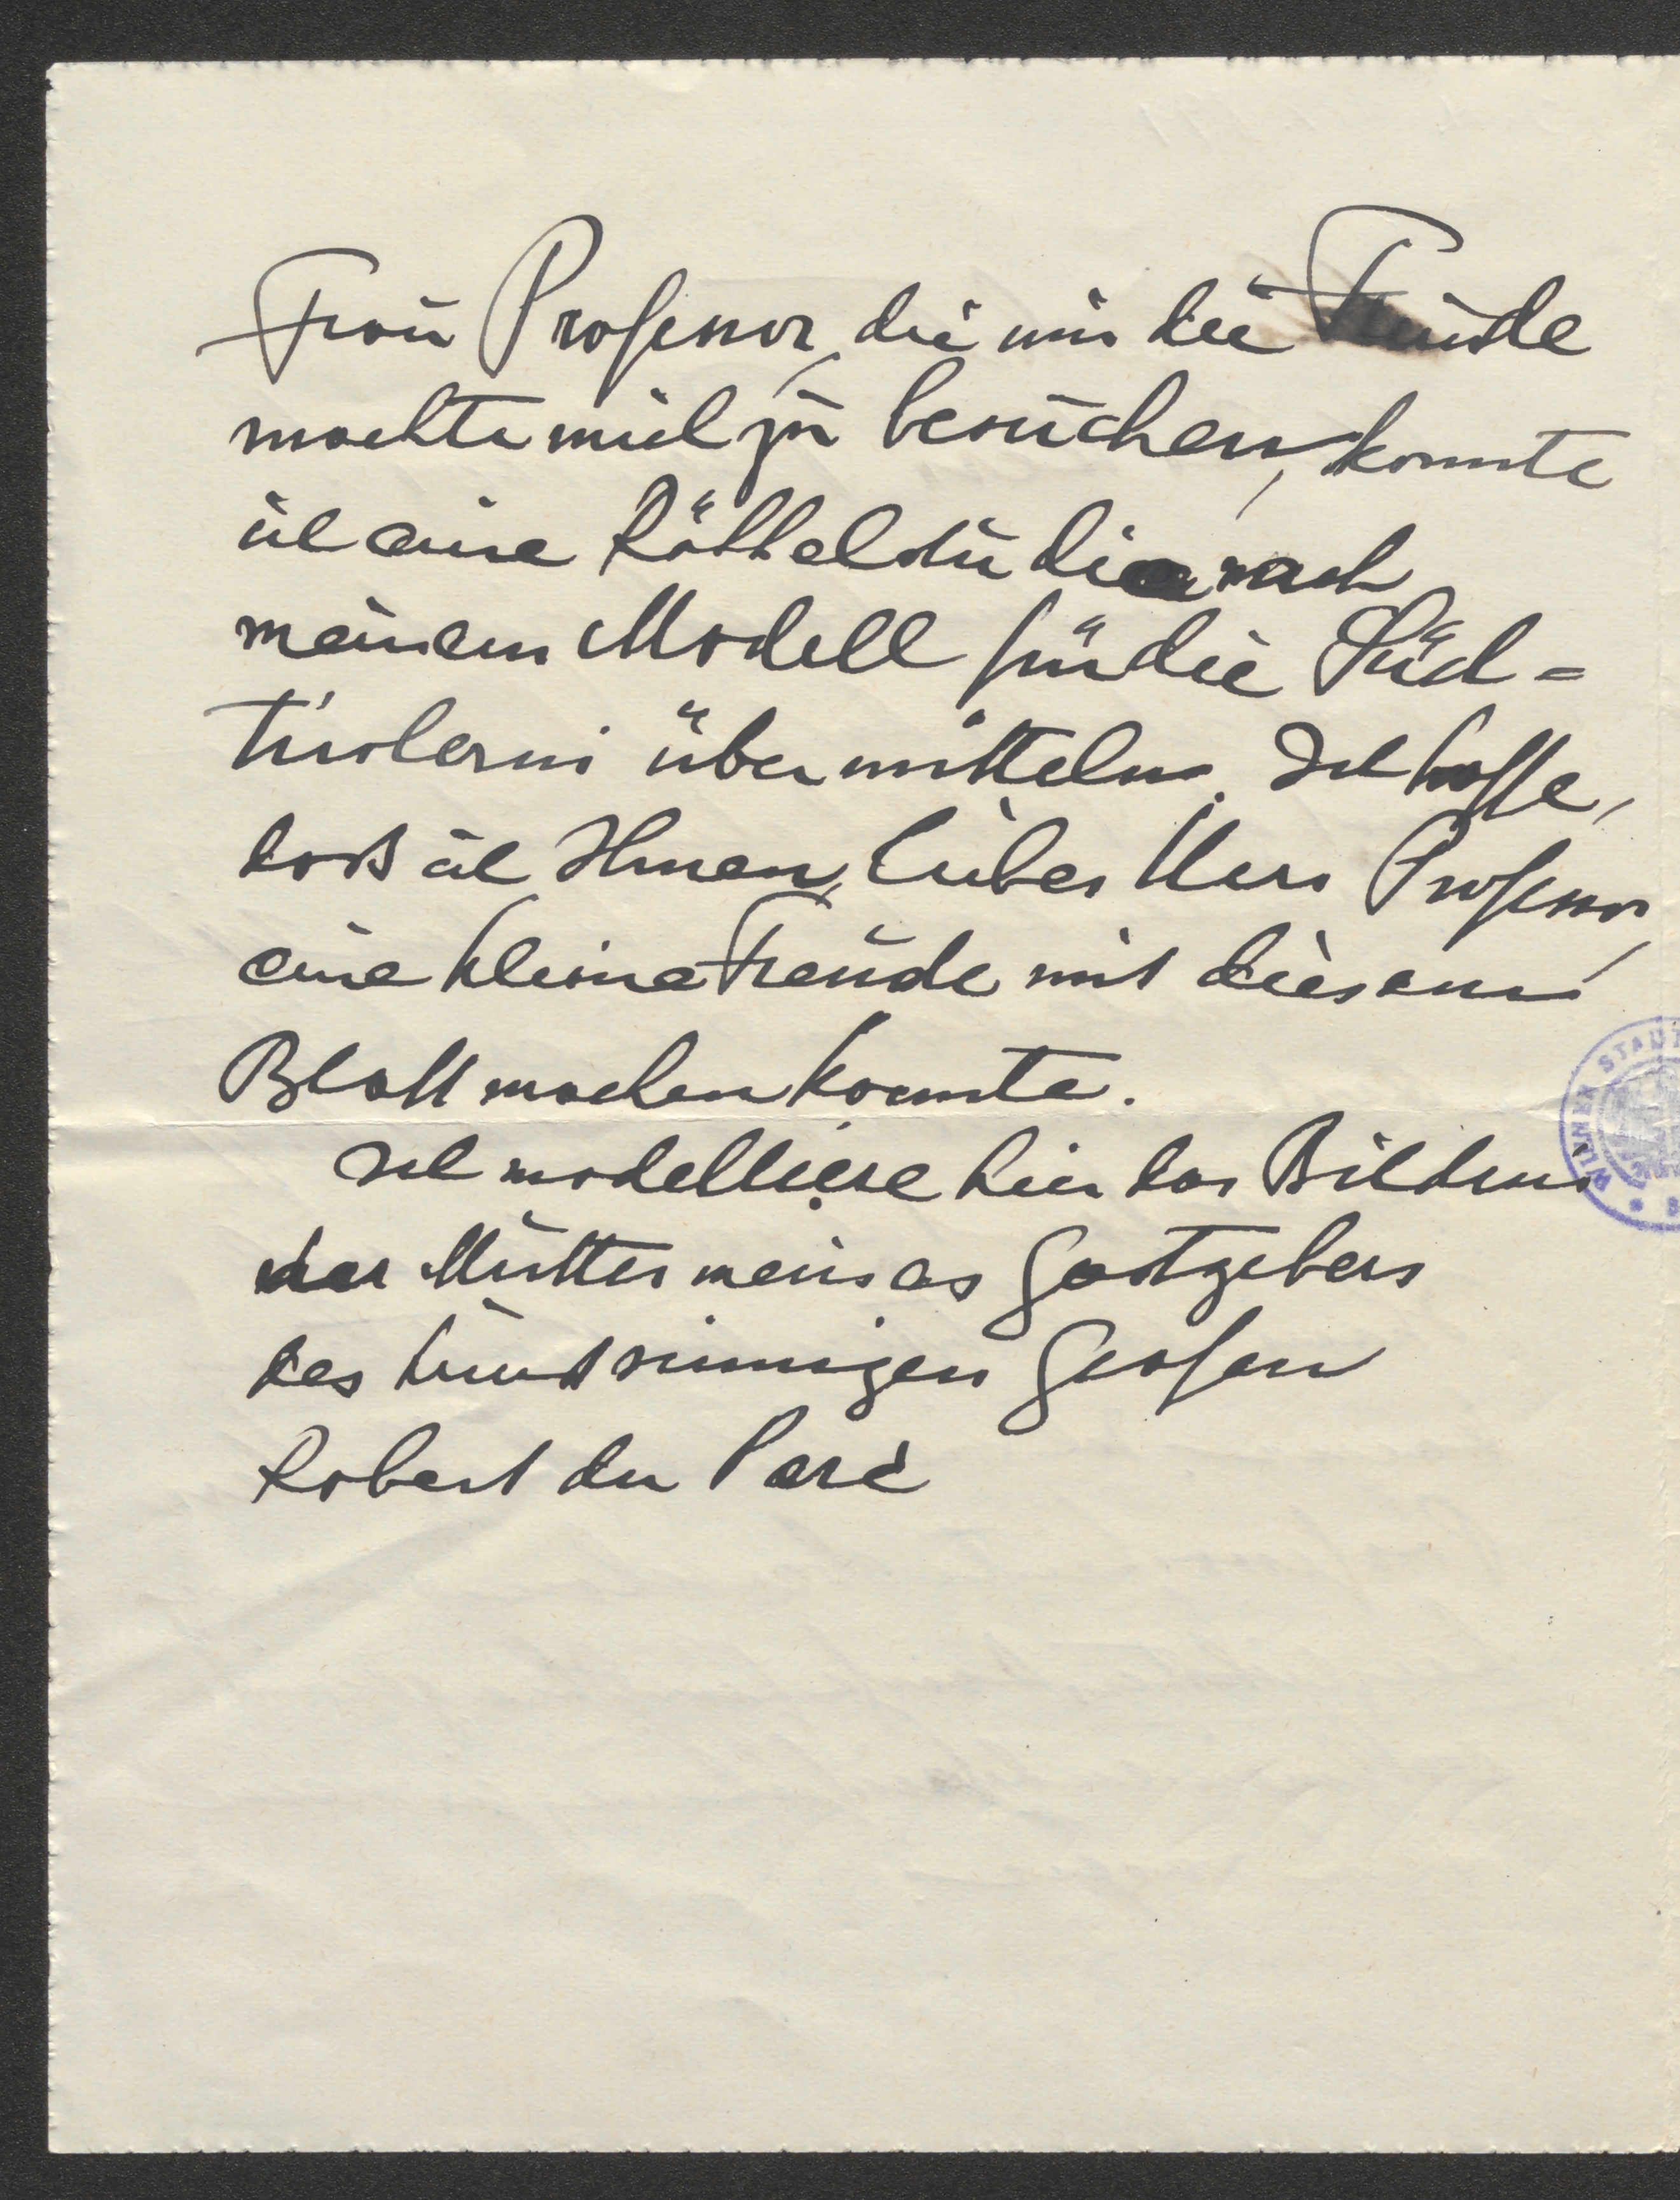 Frau Professor, die mir die Freude
machte mich zu besuchen, konnte
ich eine Röttelstudie nach
meinem Modell für die Süd=
tirolerin übermitteln. Ich hoffe,
dass ich Ihnen, lieber Herr Professor,
eine kleine Freude mit diesem
Blatt machen konnte.
Ich modelliere hier das Bildnis
der Mutter meines Gastgebers
des kunstsinnigen Grafen
Robert du Parc
WIENER STADT